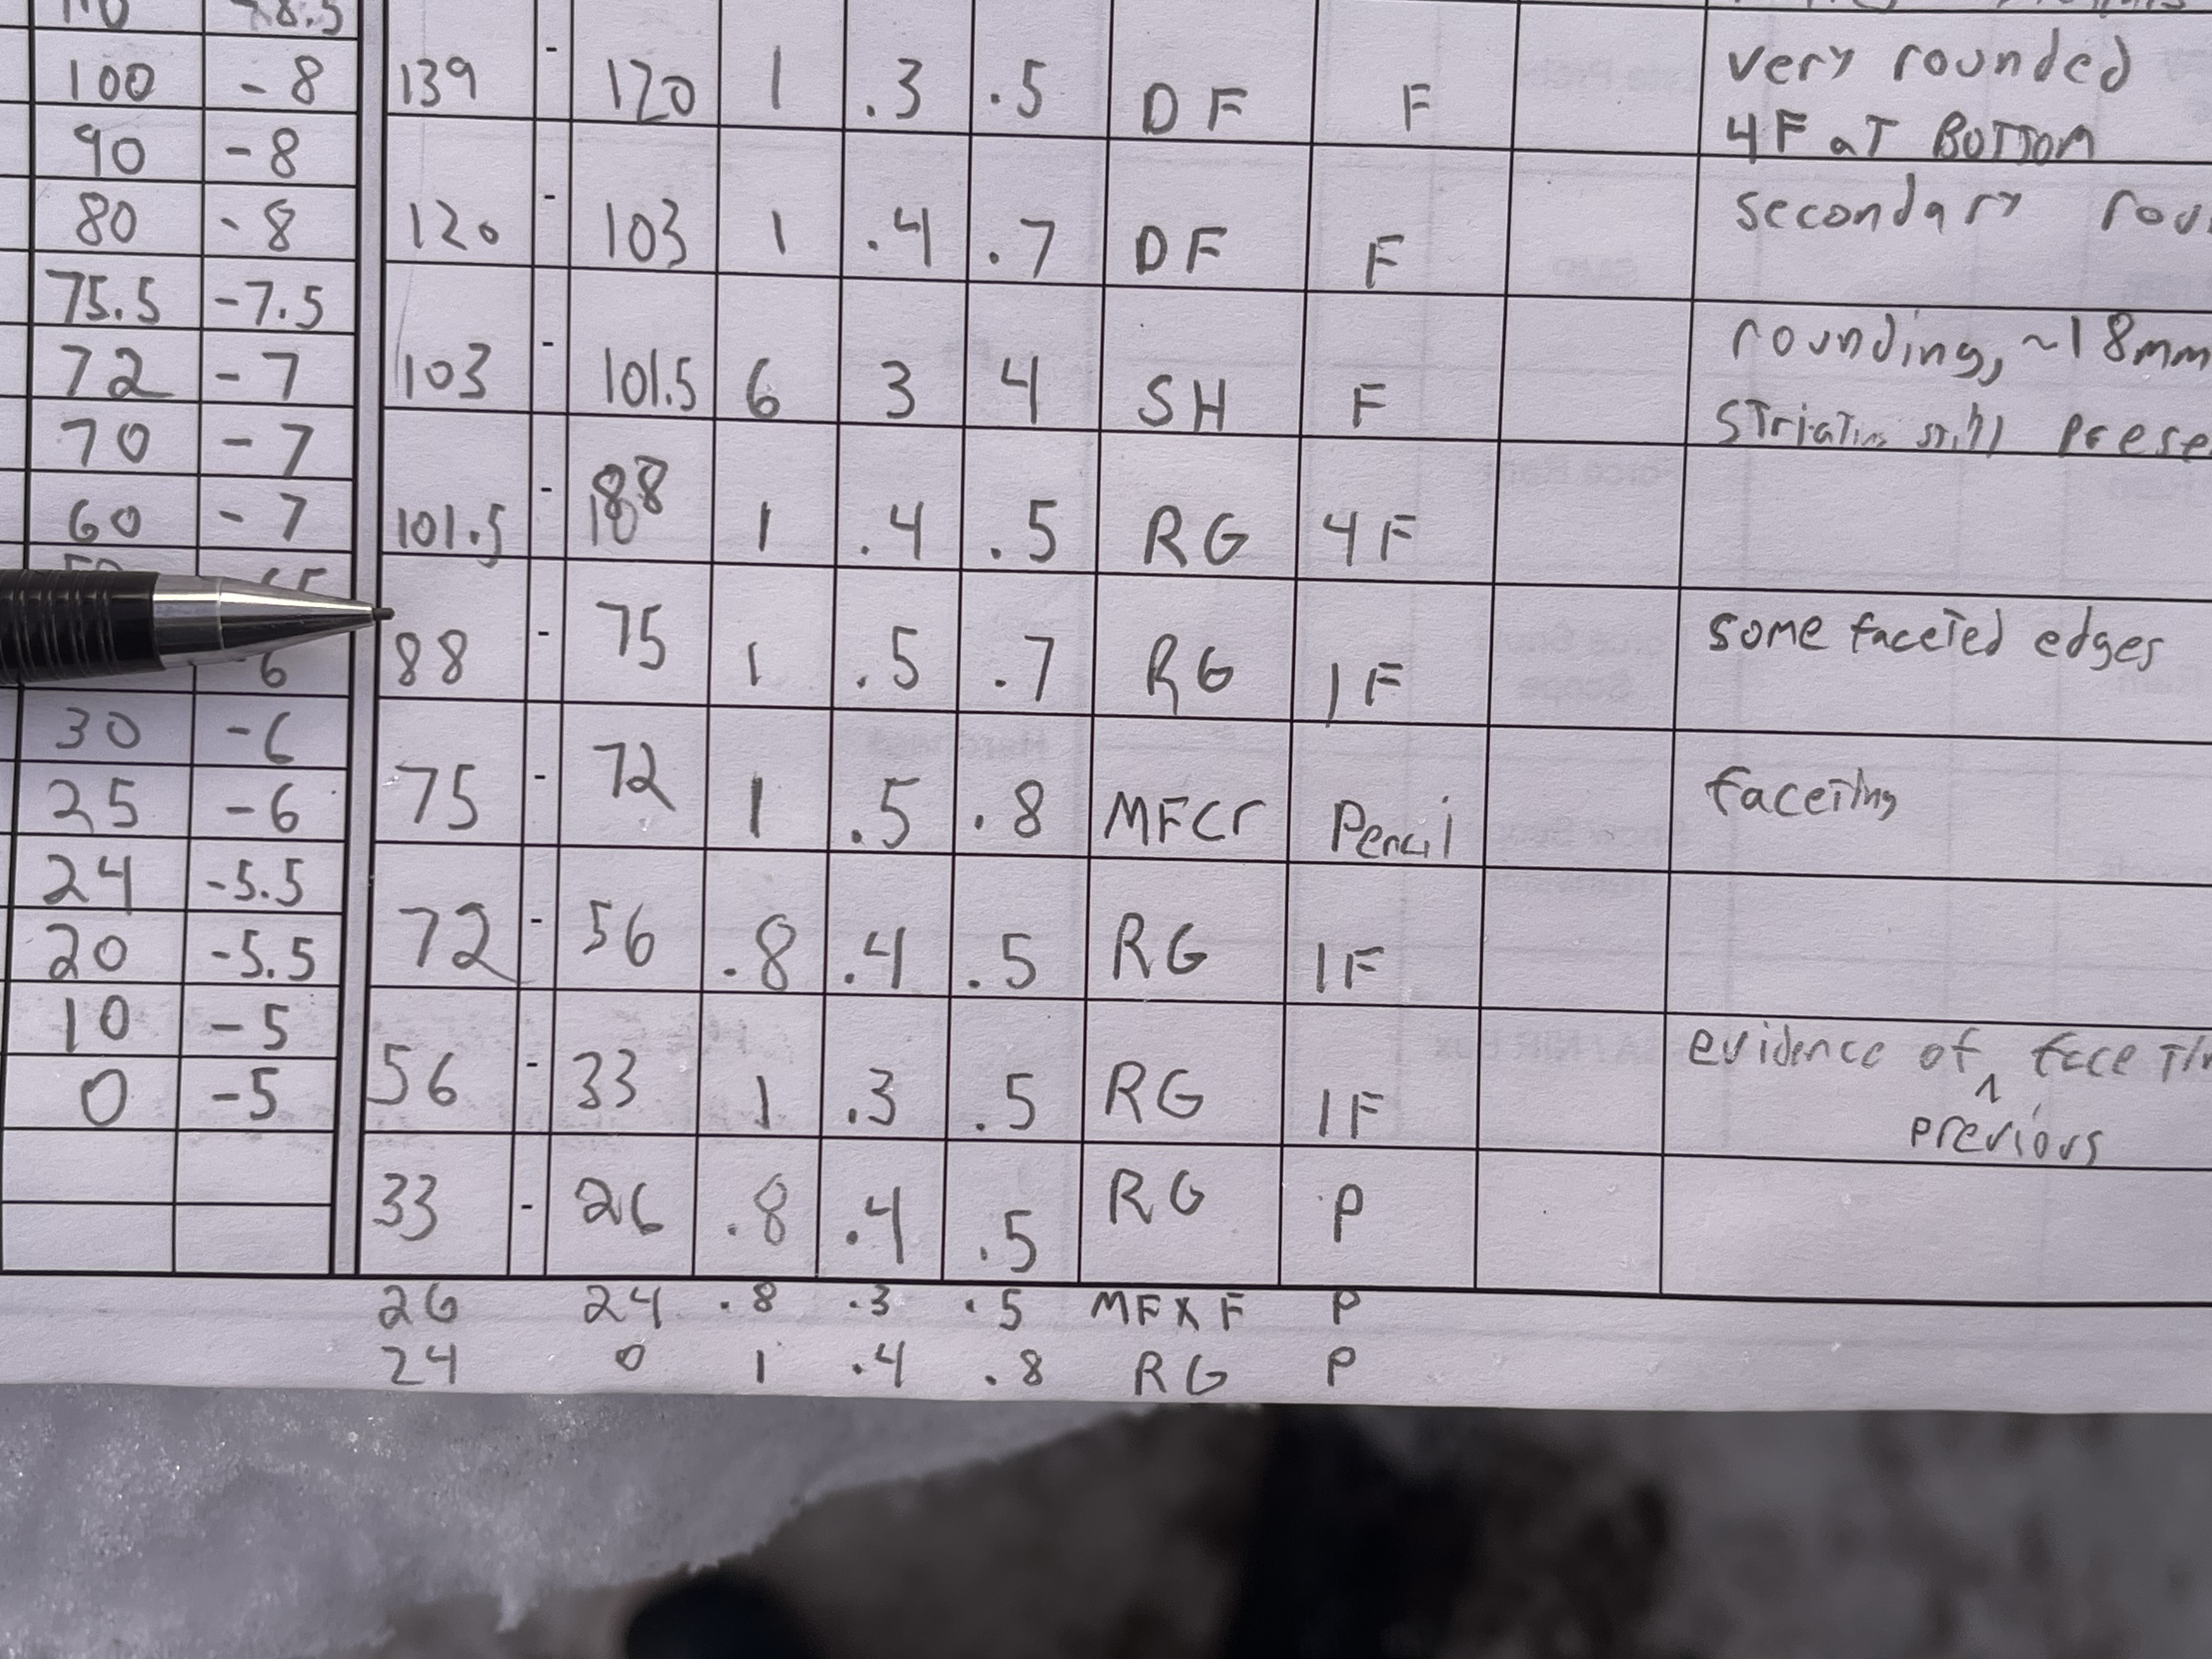 100 -8
90 -8
80 -8
75.5 -7.5
72 -7
70 -7
60 -7
30 -6
25 -6
24 -5.5
20 -5.5
10 -5
0 -5
139 - 120 1 .3 .5 DF F very rounded
4F at Bottom
120 - 103 1 .4 .7 DF F secondary
103 - 101.5 6 3 4 SH F rounding, ~18mm
still
101.5 - 88 1 .4 .5 RG 4F
88 - 75 1 .5 .7 RG 1F some faceted edges
75 - 72 1 .5 .8 MFcr Pencil faceting
72 - 56 .8 .4 .5 RG 1F
56 - 33 1 .3 .5 RG 1F evidence of
previous
33 - 26 .8 .4 .5 RG P
26 24 .8 .3 .5 MFXF P
24 0 1 .4 .8 RG P